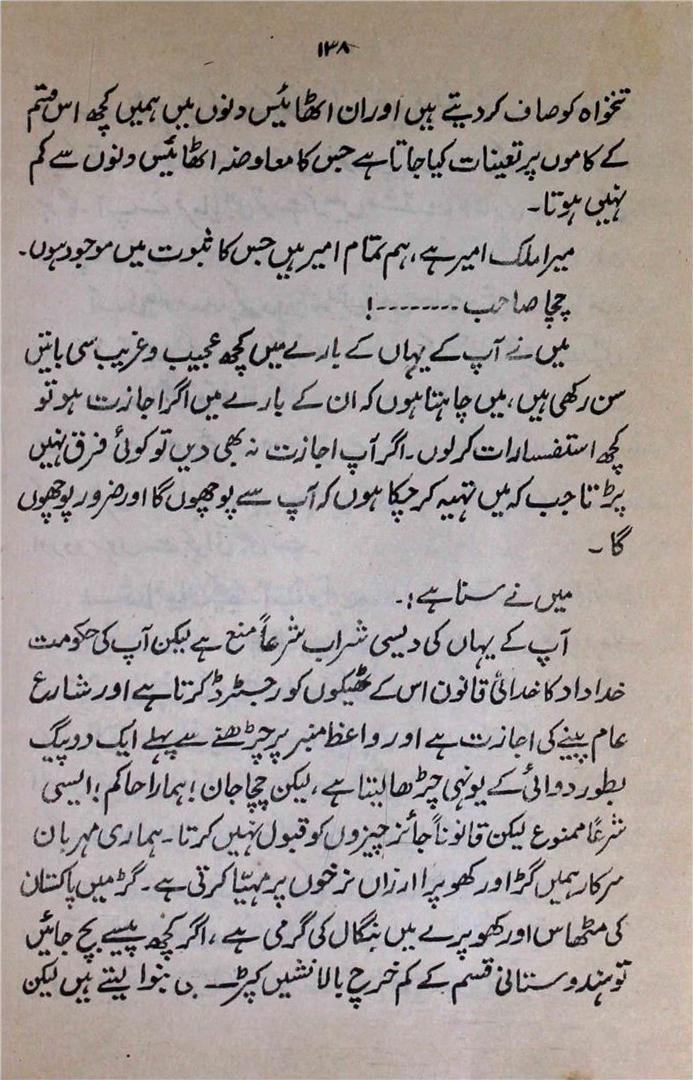 ۱۳۸
تنخواہ کو صاف کر دیتے ہیں اور ان اٹھائیس دنوں میں ہمیں کچھ اس قسم
کے کاموں پر تعینات کیا جاتا ہے جس کا معاوضہ اٹھائیس دنوں سے کم
نہیں ہوتا۔
میرا ملک امیر ہے، ہم تمام امیر ہیں جس کا ثبوت میں موجود ہوں۔
چچا صاحب --------!
میں نے آپ کے یہاں کے بارے میں کچھ عجیب و غریب سی باتیں
سن رکھی ہیں، میں چاہتا ہوں کہ ان کے بارے میں اگر اجازت ہو تو
کچھ استفسارات کر لوں۔ اگر آپ اجازت نہ بھی دیں تو کوئی فرق نہیں
پڑتا جب کہ میں تہیہ کر چکا ہوں کہ آپ سے پوچھوں گا اور ضرور پوچھوں
گا۔
میں نے سنا ہے!۔
آپ کے یہاں کی دیسی شراب شرعاً منع ہے لیکن آپ کی حکومت
خداداد کا خدائی قانون اس کے ٹھیکوں کو رجسٹرڈ کرتا ہے اور شارع
عام پینے کی اجازت ہے اور واعظ منبر پر چڑھنے سے پہلے ایک دو پیگ
بطور دوائی کے یونہی چڑھا لیتا ہے، لیکن چچا جان! ہمارا حاکم! ایسی
شرعاً ممنوع لیکن قانوناً جائز چیزوں کو قبول نہیں کرتا۔ ہماری مہربان
سرکار ہمیں گڑ اور کھوپرا ارزاں نرخوں پر مہیّا کرتی ہے۔ گڑ میں پاکستان
کی مٹھاس اور کھوپرے میں بنگال کی گرمی ہے، اگر کچھ پیسے بچ جائیں
تو ہندوستانی قسم کے کم خرچ بالا نشیں بنوا لیتے ہیں لیکن